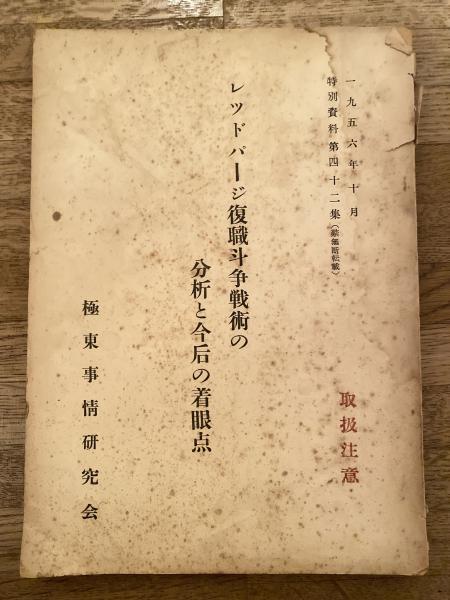 一九五六年十月
特別資料第四十二集（禁無断転載）
取扱注意
レツドパージ復職斗争戦術の
分析と今后の着眼点
極東事情研究会